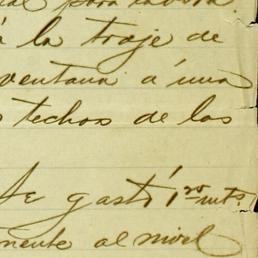 para
á la traje de
ventana á una
techos de los
Se gastó 1.ro mto.
mente al nivel